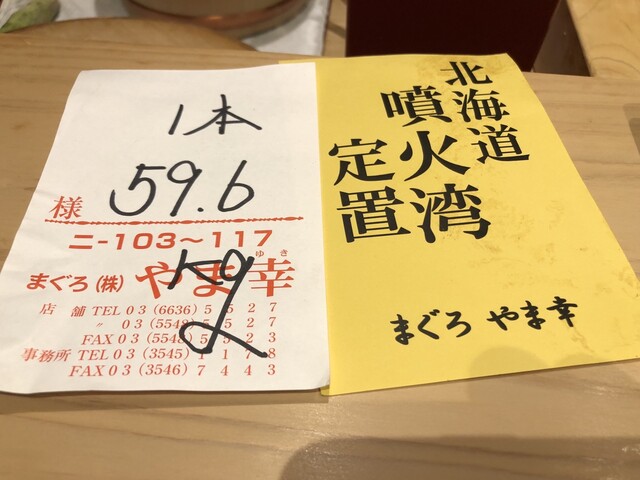 1本
59.6
kg
様
ニ-103〜117
まぐろ(株)やま幸
ゆき
店舗 TEL 03(6636)5527
〃 03(5548)5527
FAX 03(5548)5523
事務所 TEL 03(3545)1178
FAX 03(3546)7443
北海道
噴火湾
定置
まぐろ やま幸